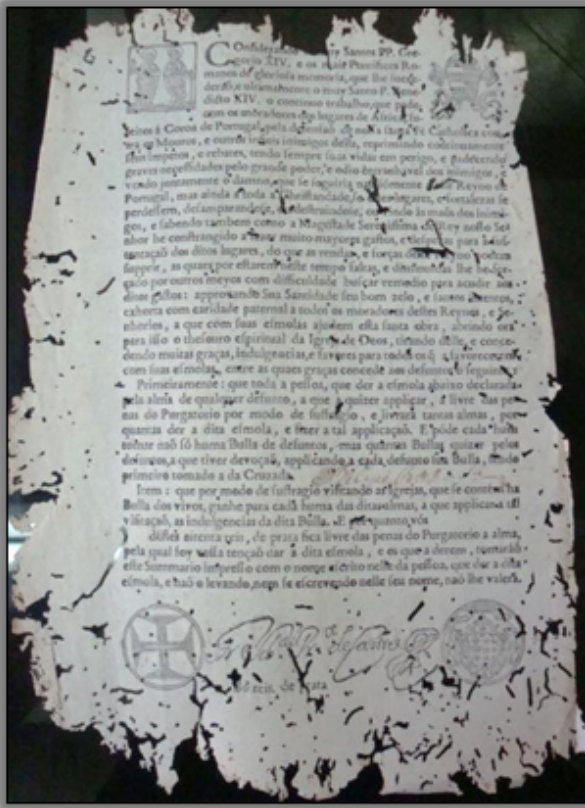 COnsiderando o muy Santos PP. Gre-
gorio XIV. e os mais Pontifices Ro-
manos de gloriosa memoria, que lhe succe-
deraõ, e ultimamente o muy Santo P. Bene-
dicto XIV. o continuo trabalho, que pade-
cem os moradores dos lugares de Africa su-
jeitos á Coroa de Portugal, pela defensaõ da nossa santa Fé Catholica con-
tra os Mouros, e outros infieis inimigos della, reprimindo continuamente
seus impetos, e rebates, tendo sempre suas vidas em perigo, e padecendo
graves necessidades pelo grande poder, e odio entranhavel dos inimigos, e
vendo juntamente o damno, que se seguiria naõ sómente ao Reyno de
Portugal, mas ainda a toda a Christandade, se os lugares, e fortalezas se
perdessem, desamparandose, ou destruindose, ou vindo ás maõs dos inimi-
gos, e sabendo tambem como a Magestade Serenissima del Rey nosso Se-
nhor he constrangido a fazer muito mayores gastos, e despezas para a sus-
tentaçaõ dos ditos lugares, do que as rendas, e forças podem
supprir, as quaes por estarem neste tempo faltas, e diminuidas lhe he for-
çado por outros meyos com difficuldade buscar remedio para acudir aos
ditos gastos: approvando Sua Santidade seu bom zelo, e santos intentos,
exhorta com caridade paternal a todos os moradores destes Reynos, e Se-
nhorios, a que com suas esmolas ajudem esta santa obra, abrindo ora
para isso o thesouro espiritual da Igreja de Deos, tirando delle, e conce-
dendo muitas graças, indulgencias, e favores para todos os q̃ a favorecerem
com suas esmolas, entre as quaes graças concede aos defuntos o seguinte.
Primeiramente: que toda a pessoa, que der a esmola abaixo declarada
pela alma de qualquer defunto, a que a quizer applicar, é livre das pe-
nas do Purgatorio por modo de suffragio, e livrará tantas almas, por
quantas der a dita esmola, e fizer a tal applicaçaõ. E póde cada huma
tomar naõ só huma Bulla de defuntos, mas quantas Bullas quizer pelos
defuntos, a que tiver devoçaõ, applicando a cada defunto sua Bulla, tendo
primeiro tomado a da Cruzada.
Item: que por modo de suffragio visitando as Igrejas, que se contém na
Bulla dos vivos, ganhe para cada huma das ditas almas, a que applicar a tal
visitaçaõ, as indulgencias da dita Bulla. E por quanto vós
déstes oitenta reis, de prata fica livre das penas do Purgatorio a alma,
pela qual foy vossa tençaõ dar a dita esmola, e os que a derem, tomaráõ
este Summario impresso com o nome escrito nelle da pessoa, que der a dita
esmola, e naõ o levando, nem se escrevendo nelle seu nome, naõ lhe valerá.
80 reis. de prata